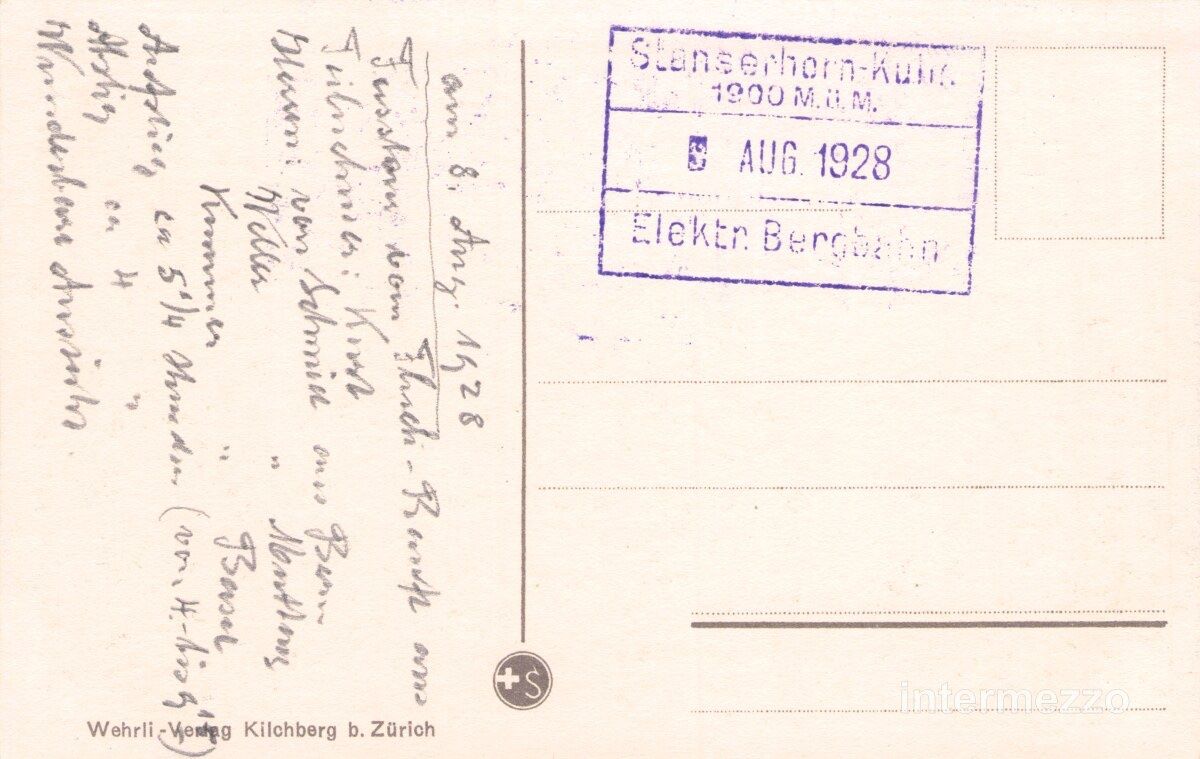 am 8. Aug. 1928
Fusstour vom Fluch-Ranft aus
Teilnehmer: Knab
Herren: von Schmied aus Bern
Weber "
Kummer " Basel
Aufstieg ca 5 1/4 Stunden (von
Abstieg ca 4 "
Wunderbare Aussicht
Stanserhorn-Kulm.
1900 M.ü.M.
8 AUG. 1928
Elektr. Bergbahn
S
Wehrli-Verlag Kilchberg b. Zürich
intermezzo